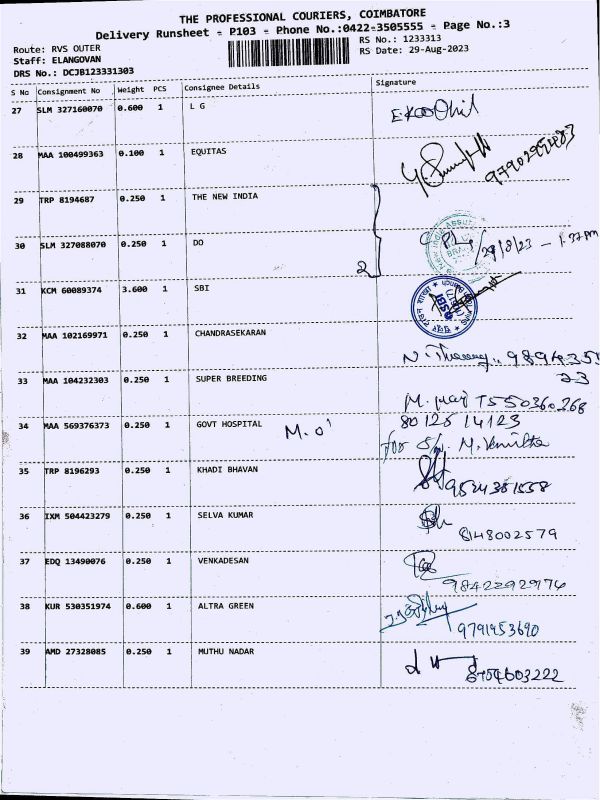 THE PROFESSIONAL COURIERS, COIMBATORE
Delivery Runsheet - P103 - Phone No.:0422-3505555 - Page No.:3
Route: RVS OUTER
Staff: ELANGOVAN
DRS No.: DCJB123331303
RS No.: 1233313
RS Date: 29-Aug-2023
S No Consignment No Weight PCS Consignee Details Signature
27 SLM 327160070 0.600 1 L G
28 MAA 100499363 0.100 1 EQUITAS
29 TRP 8194687 0.250 1 THE NEW INDIA
30 SLM 327088070 0.250 1 DO 2 29/8/23 - 1.77pm
31 KCM 60089374 3.600 1 SBI
32 MAA 102169971 0.250 1 CHANDRASEKARAN
33 MAA 104232303 0.250 1 SUPER BREEDING
34 MAA 569376373 0.250 1 GOVT HOSPITAL M.O' 8012514123
35 TRP 8196293 0.250 1 KHADI BHAVAN
36 IXM 504423279 0.250 1 SELVA KUMAR 8148002579
37 EDQ 13490076 0.250 1 VENKADESAN 9842292976
38 KUR 530351974 0.600 1 ALTRA GREEN 9791953690
39 AMD 27328085 0.250 1 MUTHU NADAR 8754603222